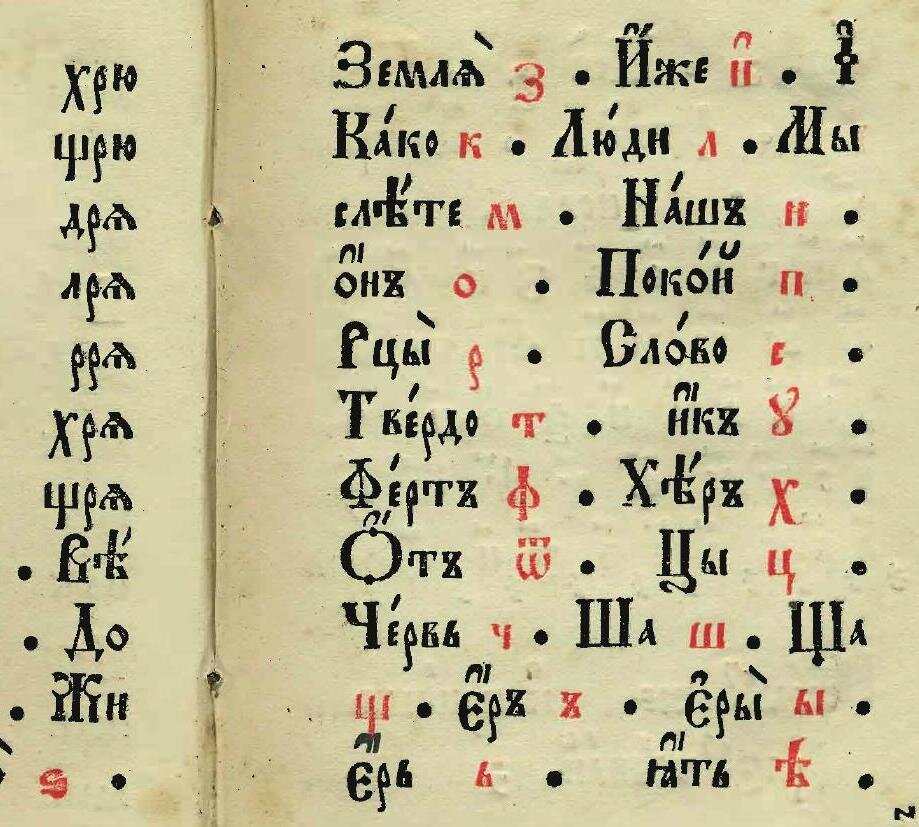 хрю
щрю
дрѧ
лрѧ
ррѧ
хрѧ
щрѧ
• Вѣ́
• До
• Жи
ѕ •
Землѧ̀ з • И҆́же и҆ • І҆
Ка́ко к • Лю́ди л • Мы
слѣ́те м • На́шъ н •
о҆́нъ о • Поко́й п •
Рцы̀ р • Сло́во с •
Тве́рдо т • и҆́къ ꙋ •
Фе́ртъ ф • Хѣ́ръ х •
Ѻ҆́тъ ѿ • Цы ц •
Че́рвь ч • Ша ш • Ща
щ • є҆́ръ ъ • є҆ры̀ ы •
є҆́рь ь • ꙗ҆́ть ѣ •